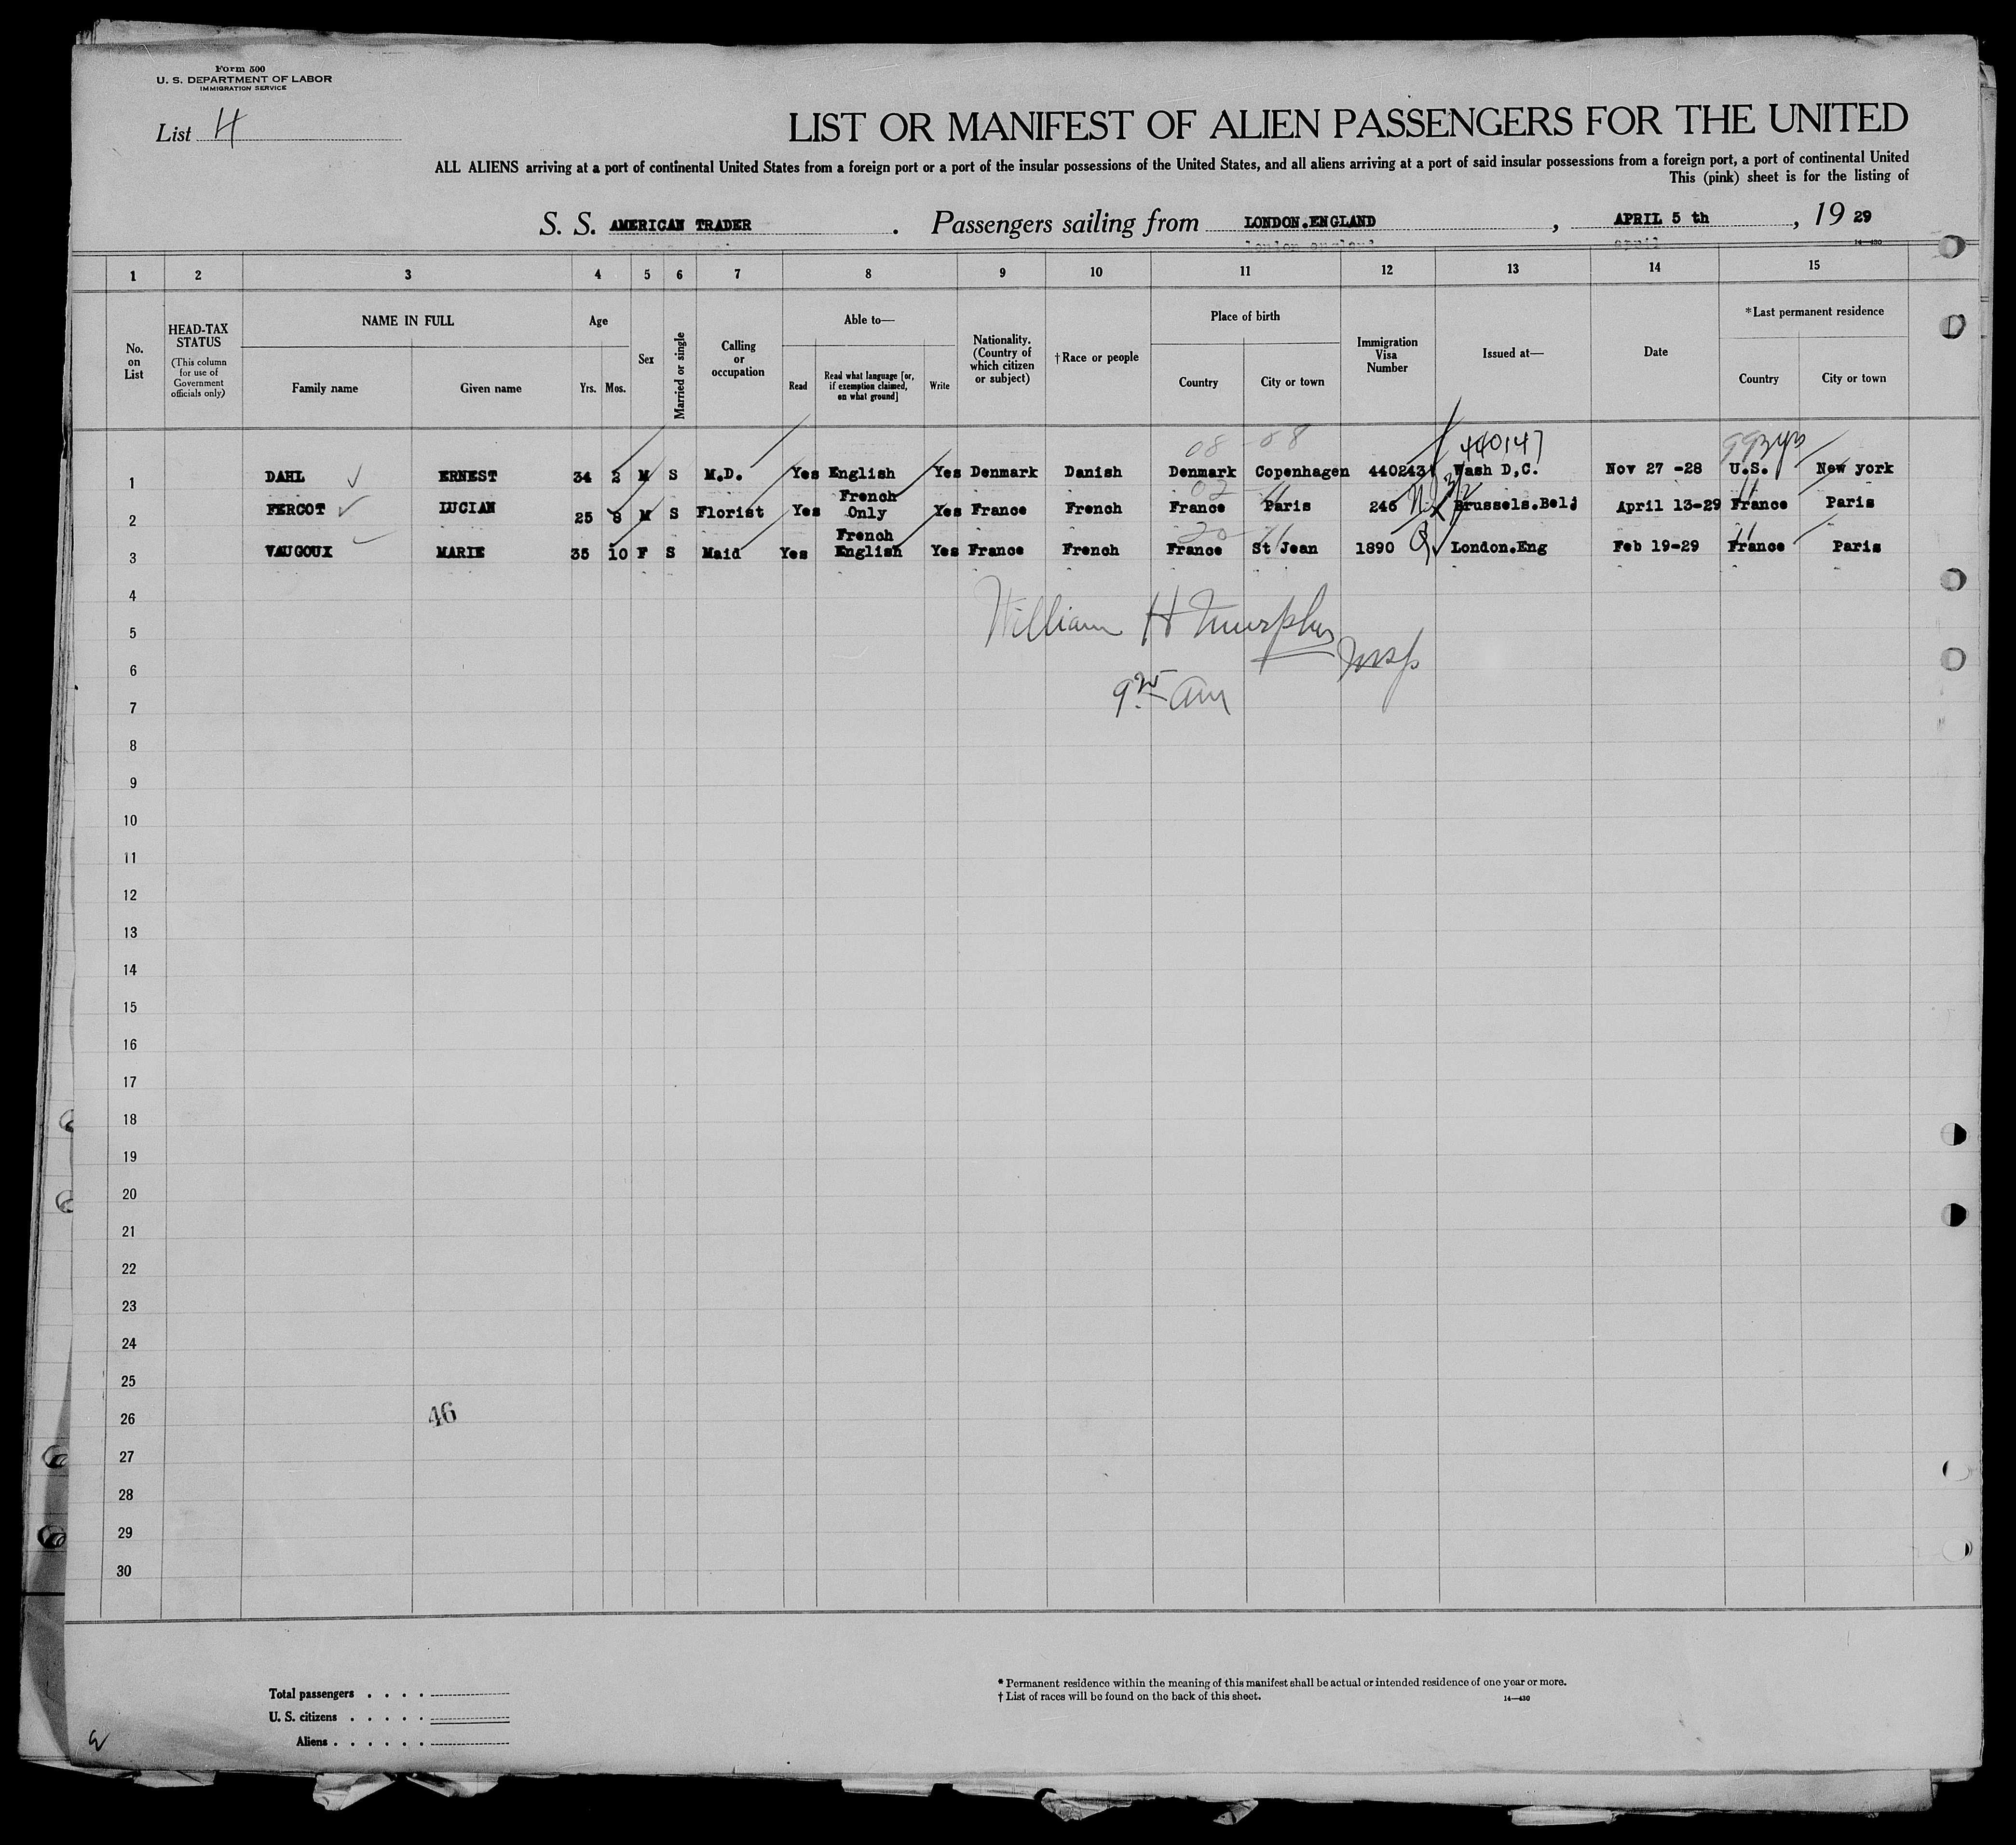 Form 500
U. S. DEPARTMENT OF LABOR
IMMIGRATION SERVICE
List 4
LIST OR MANIFEST OF ALIEN PASSENGERS FOR THE UNITED
ALL ALIENS arriving at a port of continental United States from a foreign port or a port of the insular possessions of the United States, and all aliens arriving at a port of said insular possessions from a foreign port, a port of continental United
This (pink) sheet is for the listing of
S. S. AMERICAN TRADER . Passengers sailing from LONDON.ENGLAND , APRIL 5 th , 19 29
14—430
1 2 3 4 5 6 7 8 9 10 11 12 13 14 15
No. on List
HEAD-TAX STATUS
(This column for use of Government officials only)
NAME IN FULL
Family name Given name
Age
Yrs. Mos.
Sex
Married or single
Calling or occupation
Able to—
Read Read what language [or, if exemption claimed, on what ground] Write
Nationality. (Country of which citizen or subject)
†Race or people
Place of birth
Country City or town
Immigration Visa Number
Issued at—
Date
*Last permanent residence
Country City or town
08 88 440147
1 DAHL ERNEST 34 2 M S M.D. Yes English Yes Denmark Danish Denmark Copenhagen 440243 Wash D,C. Nov 27 -28 U.S. New york
02
2 FERCOT LUCIAN 25 8 M S Florist Yes French Only Yes France French France Paris 246 Brussels.Belj April 13-29 France Paris
20
3 VAUGOUX MARIE 35 10 F S Maid Yes French English Yes France French France St Jean 1890 London.Eng Feb 19-29 France Paris
4
5 William H Murphy
6 Insp
7 9 25 am
8
9
10
11
12
13
14
15
16
17
18
19
20
21
22
23
24
25
26 46
27
28
29
30
Total passengers . . . .
U. S. citizens . . . . .
Aliens . . . . . .
* Permanent residence within the meaning of this manifest shall be actual or intended residence of one year or more.
† List of races will be found on the back of this sheet. 14—430